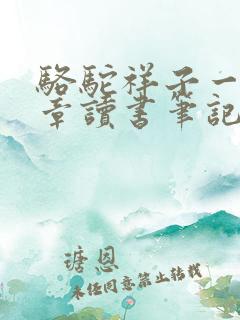 駱駝祥子一
章讀書筆記
瑭恩
未經同意禁止轉載